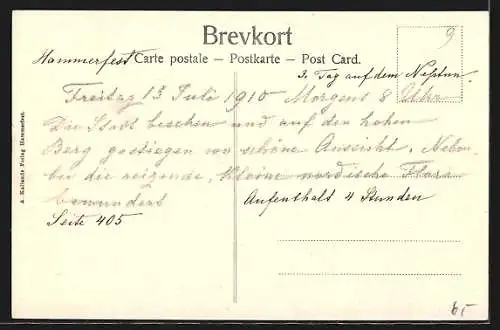 Brevkort
Hammerfest Carte postale – Postkarte – Post Card.
9
3. Tag auf dem Neptun.
Freitag 15 Juli 1910 Morgens 8 Uhr
Die Stadt besehen und auf den hohen
Berg gestiegen wo schöne Aussicht. Neben
bei die reizende, kleine nordische Flora
bewundert
Aufenthalt 4 Stunden
Seite 405
A. Kaltands Forlag Hammerfest.